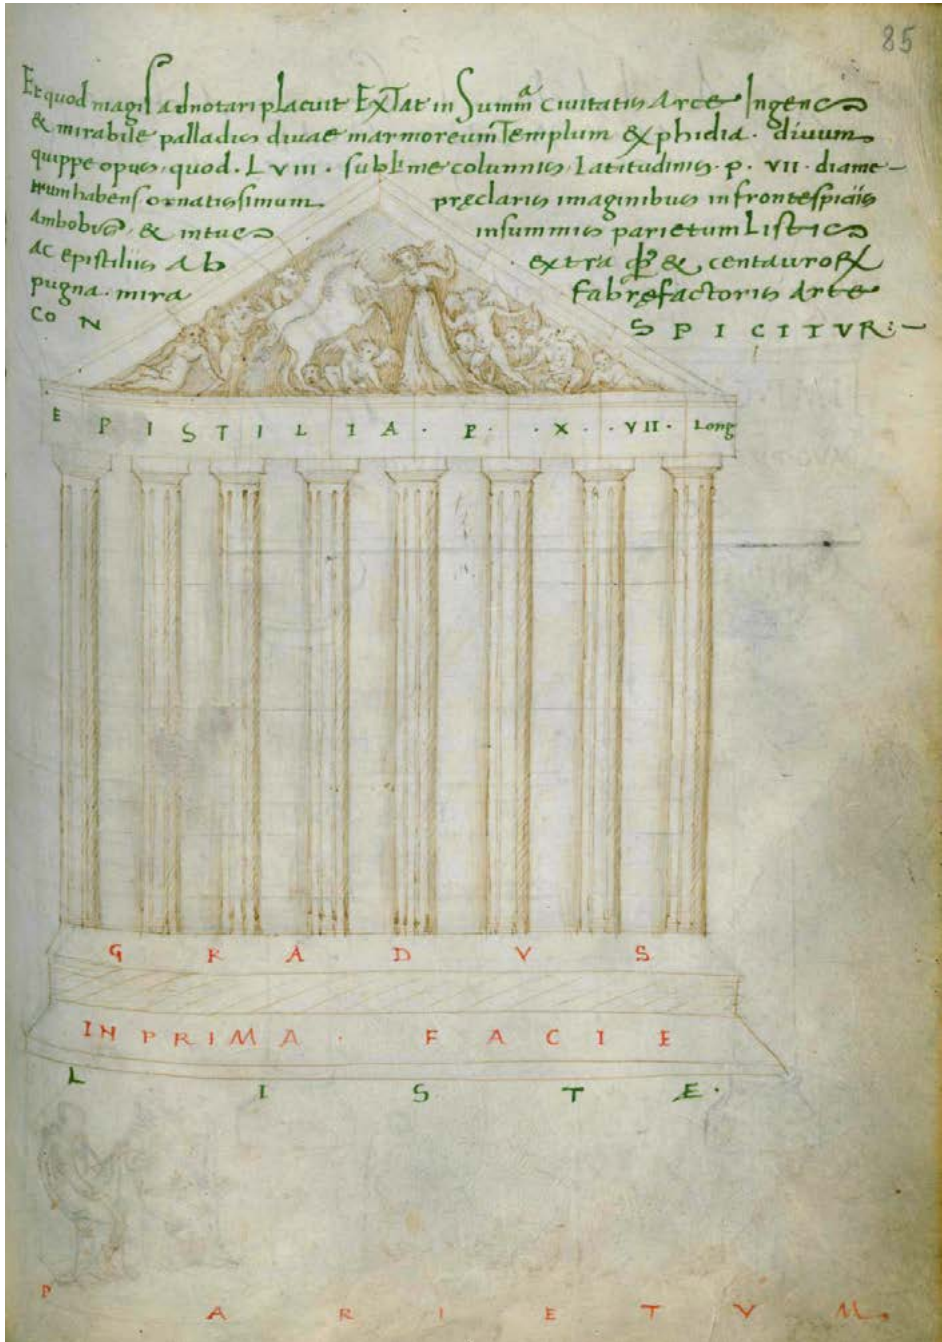 85
Et quod magis adnotari placuit ExTat in Summa civitatis Arce Ingens
& mirabile palladis divae marmoreum Templum & phidia. divum
quippe opus, quod. LVIII. sublime columnis, Latitudinis. p. VII. diame-
trum habens ornatissimum pręclaris imaginibus in frontespiciis
Ambobus, & intus in summis parietum Listis
Ac epistiliis Ab extra & centauroꝝ
pugna. mira fabrefactoris Arte
CON SPICITVR:-
EPISTILIA. P. X. VII. Long
GRADVS
IN PRIMA. FACIE
LISTÆ.
PARIETVM